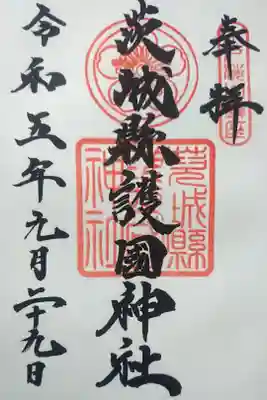 奉拝
茨城縣護國神社
令和五年九月二十九日
茨城縣
神社